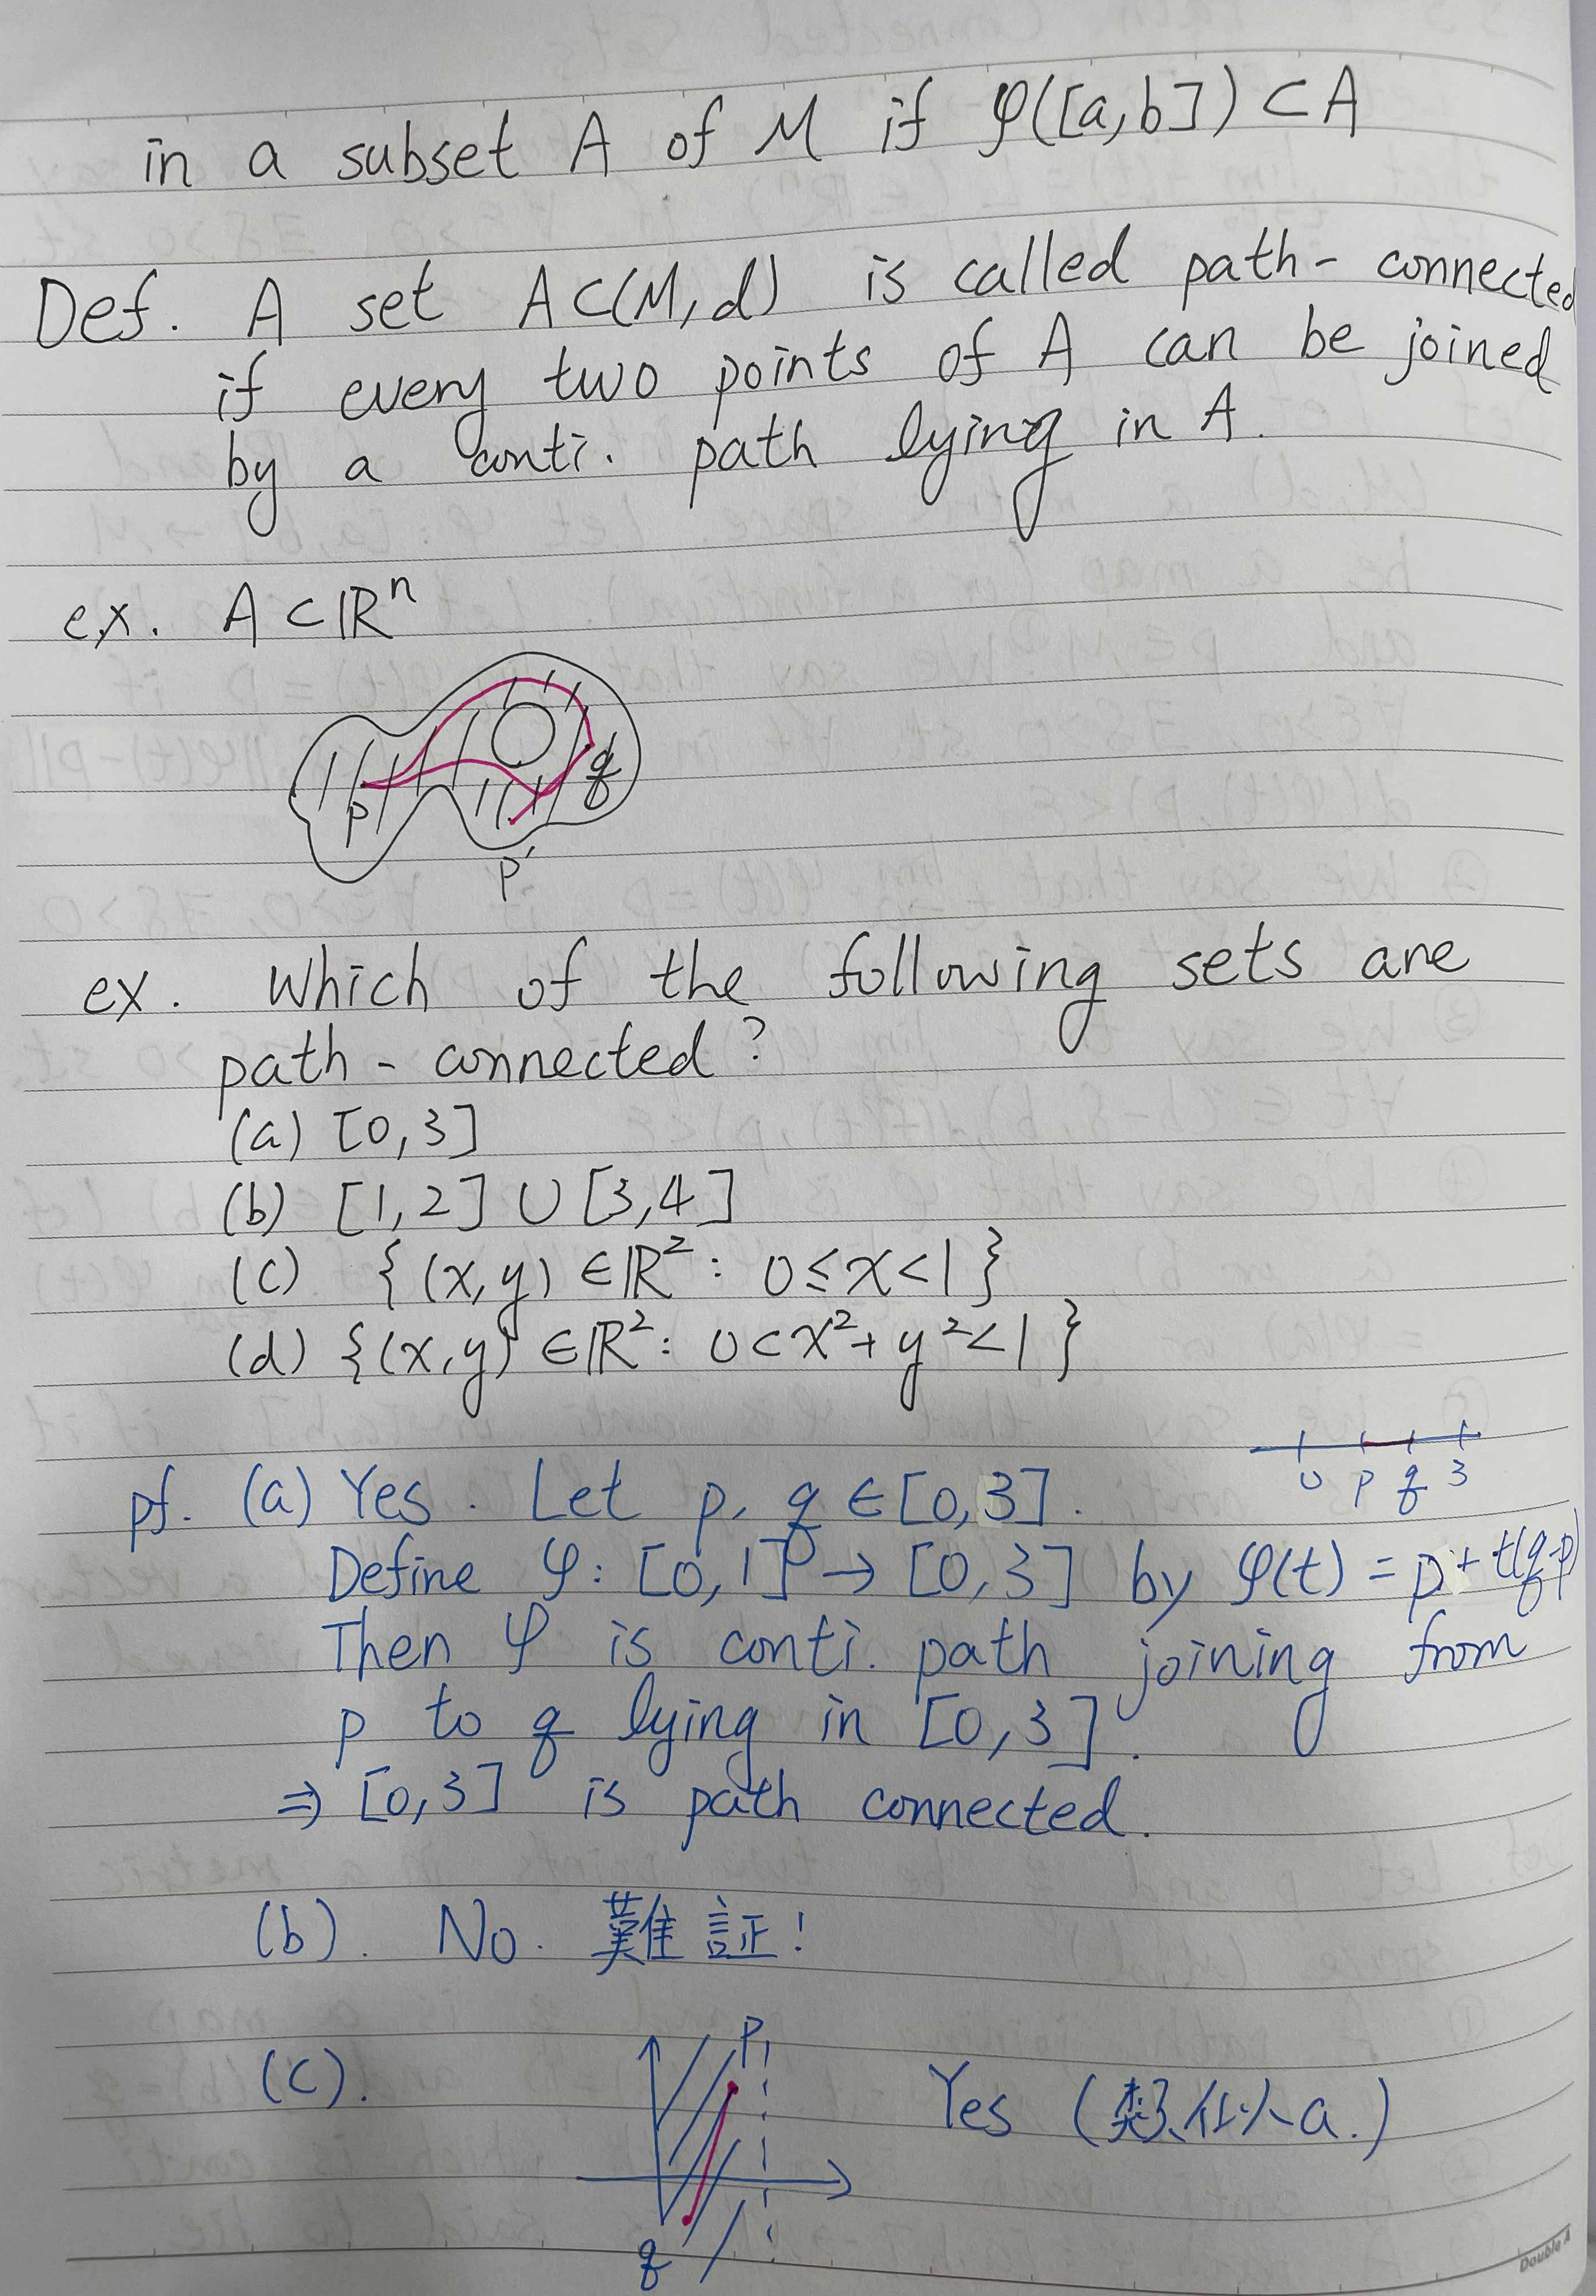 in a subset A of M if φ([a,b]) ⊂ A
Def. A set A⊂(M,d) is called path-connected
if every two points of A can be joined
by a conti. path lying in A.
ex. A⊂ℝⁿ
p
q
p'
ex. Which of the following sets are
path-connected?
(a) [0,3]
(b) [1,2] ∪ [3,4]
(c) {(x,y) ∈ℝ²: 0≤x<1}
(d) {(x,y) ∈ℝ²: 0<x²+y²<1}
0 p q 3
pf. (a) Yes. Let p, q ∈[0,3].
Define φ: [0,1] → [0,3] by φ(t) = p+t(q-p)
Then φ is conti. path joining from
p to q lying in [0,3].
⇒ [0,3] is path connected.
(b). No. 難証!
(c). p Yes (類似a.)
q
Double A